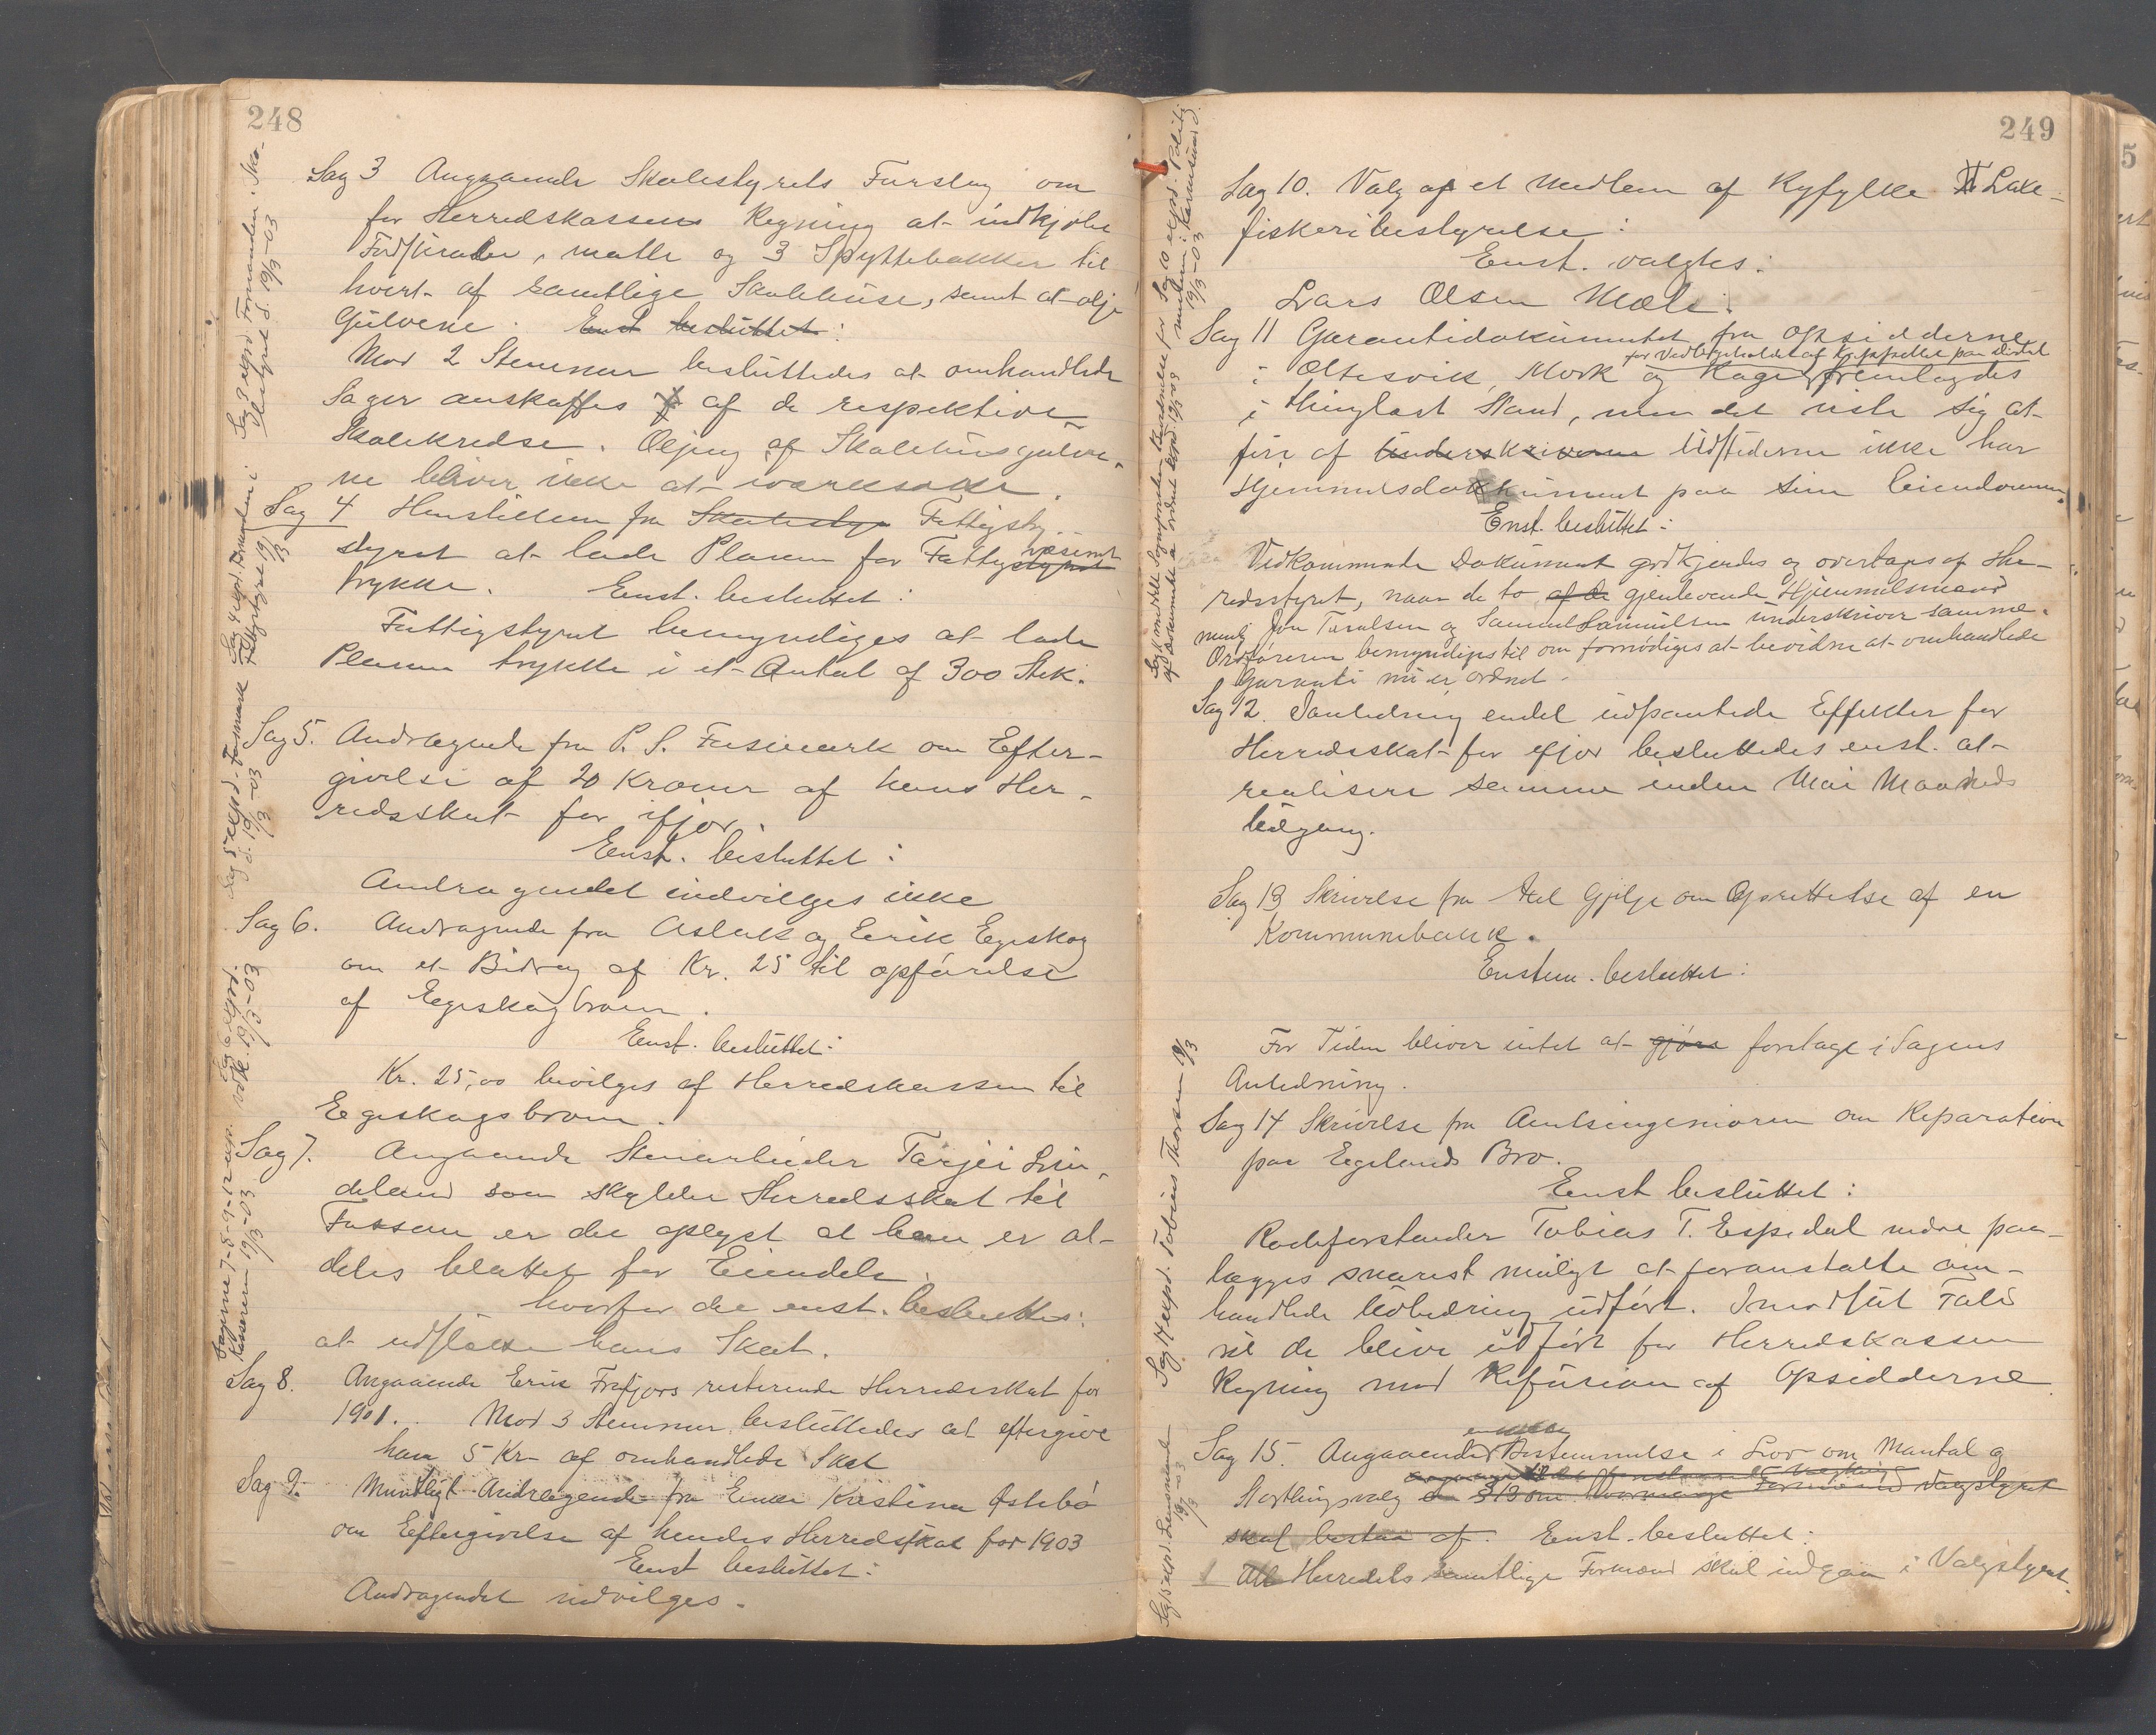 248
Sag 3 Angaaende Skolestyrets Forslag om
for Herredskassens Regning at indkjøbe
Fodskraber, matte og 3 Spyttebakker til
hvert af samtlige Skolehuse, samt at olje
Gulvene. Enst besluttet:
Mod 2 Stemmer besluttedes at omhandlede
Sager anskaffes af de respektive
Skolekredse. Oljing af Skolehusgulve-
ne bliver ikke at iværksætte.
Sag 4 Henstillen fra Skolestyr Fattigsty-
styret at lade Planen for Fattigstyret væsenet
trykke. Enst. besluttet:
Fattigstyret bemyndiges at lade
Planen trykke i et Antal af 300 Stk.
Sag 5. Andragende fra P. S. Fusmark om Efter-
givelse af 20 Kroner af hans Her-
redsskat for ifjor.
Enst. besluttet:
Andragendet indvilges ikke
Sag 6. Andragende fra Aslak og Eirik Egeskog
om et Bidrag af Kr. 25 til opførelse
af Egeskogbroen.
Enst. besluttet:
Kr. 25,00 bevilges af Herredskassen til
Egeskogsbroen.
Sag 7. Angaaende Stenarbeider Tarjei Lin-
deland som skylder Herredsskat til
Fossan er det oplyst at han er al-
deles blottet for Eiendele,
hvorfor det enst. besluttes:
at udslette hans Skat.
Sag 8. Angaaende Erik Frafjors resterende Herredsskat for
1901. Mod 3 Stemmer besluttedes at eftergive
ham 5 Kr af omhandlede Skat
Sag 9. Mundtligt Andragende fra Enke Kristina Østebø
om Eftergivelse af hendes Herredsskat for 1903
Enst besluttet:
Andragendet indvilges.
Sag 3 expd. Formanden i Sko-
lestyret d. 19/3-03
Sag 4 expd. Formanden i
Fattigstyret 19/3
Sag 5 expd. Fusmark
d. 19/3-03
Sag 6 expd.
vedk. 19/3-03
Sagerne 7-8-9-12 exp.
Kassereren 19/3-03
249
Sag 10. Valg af et Medlem af Ryfylke II Laxe-
fiskeribestyrelse:
Enst. valgtes:
Lars Olsen Mæle.
Sag 11 Garantidokumentet fra Opsidderne
for Vedligeholdet af paa Dirdal
i Oltesvik, Mork og Rage fremlagdes
i thinglæst Stand, men det viste sig at
fire af Underskriverne Udstederne ikke har
Hjemmelsdokkument paa sine Eiendomme.
Enst. besluttet:
Vedkommende Dokument godkjendes og overtages af Her-
redsstyret, naar de to af de gjenlevende Hjemmelsmænd
nemlig Jon Taralsen og Samuel Samuelsen underskriver samme.
Ordføreren bemyndiges til om fornødiges at bevidne at omhandlede
Garanti nu er ordnet.
Sag 12. I anledning endel udpantede Effekter for
Herredsskat for ifjor besluttedes enst. at
realisere samme inden Mai Maaneds
Udgang.
Sag 13 Skrivelse fra Axel Gjilje om Oprettelse af en
Kommunebank.
Enstem. besluttet:
For Tiden bliver intet at gjøre foretage i Sagens
Anledning.
Sag 14 Skrivelse fra Amtsingeniøren om Reparation
paa Egelands Bro.
Enst besluttet:
Rodeforstander Tobias T. Espedal nedre paa-
lægges snarest muligt at foranstalte om-
handlede Udbedring udført. I modsat Fald
vil de blive udført for Herredskassen
Regning mod Refusion af Opsidderne.
Sag 15. Angaaende Bestemmelse i Lov om Mantal og
Stortingsvalg § 13 om Hvormange Formænd Valgstyret
skal bestaa af. Enst. besluttet:
At Herredets samtlige Formænd skal indgaa i Valgstyret.
Sag 10 expd. Politi-
mesteren i Karmsund d.
19/3-03
Sag 14 expd. Tobias Thorsen 19/3
Sag 15 expd. Lensmanden
19/3-03